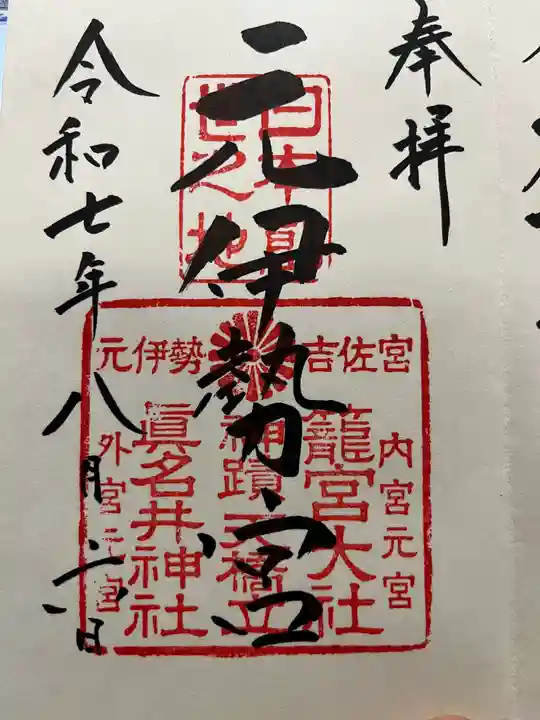 奉拝
元伊勢宮
日本
世之地
吉佐宮
内宮元宮
籠宮大社
神蹟天橋立
元伊勢
眞名井神社
外宮元宮
令和七年八月六日